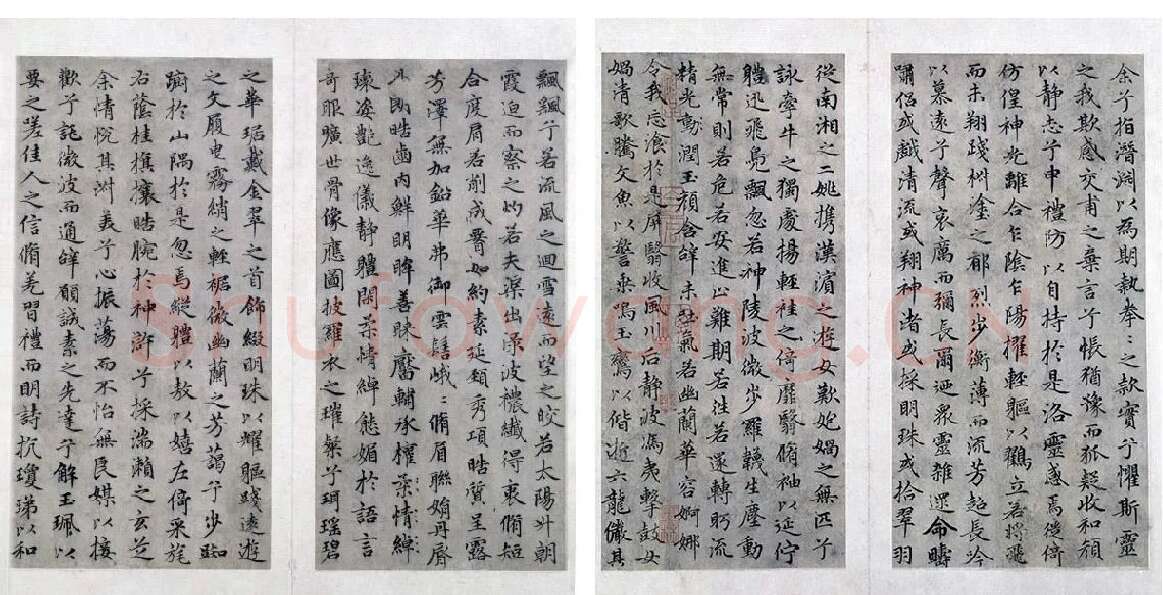 飄飄兮若流風之迴雪遠而望之皎若太陽升朝
霞迫而察之灼若夫渠出淥波襛纖得衷脩短
合度肩若削成要如約素延頸秀項皓質呈露
芳澤無加鉛華弗御雲髻峨〻脩眉聯娟丹脣
外朗皓齒内鮮明眸善睞靨輔承權柔情綽
瓌姿艷逸儀静體閑柔情綽態媚於語言
奇服曠世骨像應圖披羅衣之璀粲兮珥瑶碧
之華琚戴金翠之首飾綴明珠以耀軀踐遠遊
之文履曳霧綃之輕裾微幽蘭之芳藹兮步踟
躕於山隅於是忽焉縱體以敖以嬉左倚采旄
右蔭桂旗攘皓腕於神滸兮採湍瀨之玄芝
余情恱其淑美兮心振蕩而不怡無良媒以接
歡兮託微波而通辭願誠素之先達兮解玉珮以
要之嗟佳人之信脩羌習禮而明詩抗瓊珶以和
余兮指潛淵以為期執拳〻之款實兮懼斯靈
之我欺感交甫之棄言兮悵猶豫而狐疑收和顔
以静志兮申禮防以自持於是洛靈感焉徙倚
仿偟神光離合乍陰乍陽擢輕軀以鶴立若將飛
而未翔踐椒塗之郁烈步衡薄而流芳超長吟
以慕遠兮聲哀厲而彌長爾迺衆靈雜遝命疇
嘯侣或戲清流或翔神渚或採明珠或拾翠羽
從南湘之二姚攜漢濱之遊女歎匏媧之無匹兮
詠牽牛之獨處揚輕袿之倚靡翳脩袖以延佇
體迅飛鳧飄忽若神陵波微步羅韈生塵動
無常則若危若安進止難期若往若還轉眄流
精光動潤玉顔含辭未吐氣若幽蘭華容婀娜
令我忘飡於是屏翳收風川后静波馮夷擊鼓女
媧清歌騰文魚以警乘鳴玉鸞以偕逝六龍儼其
Shufawang.CN